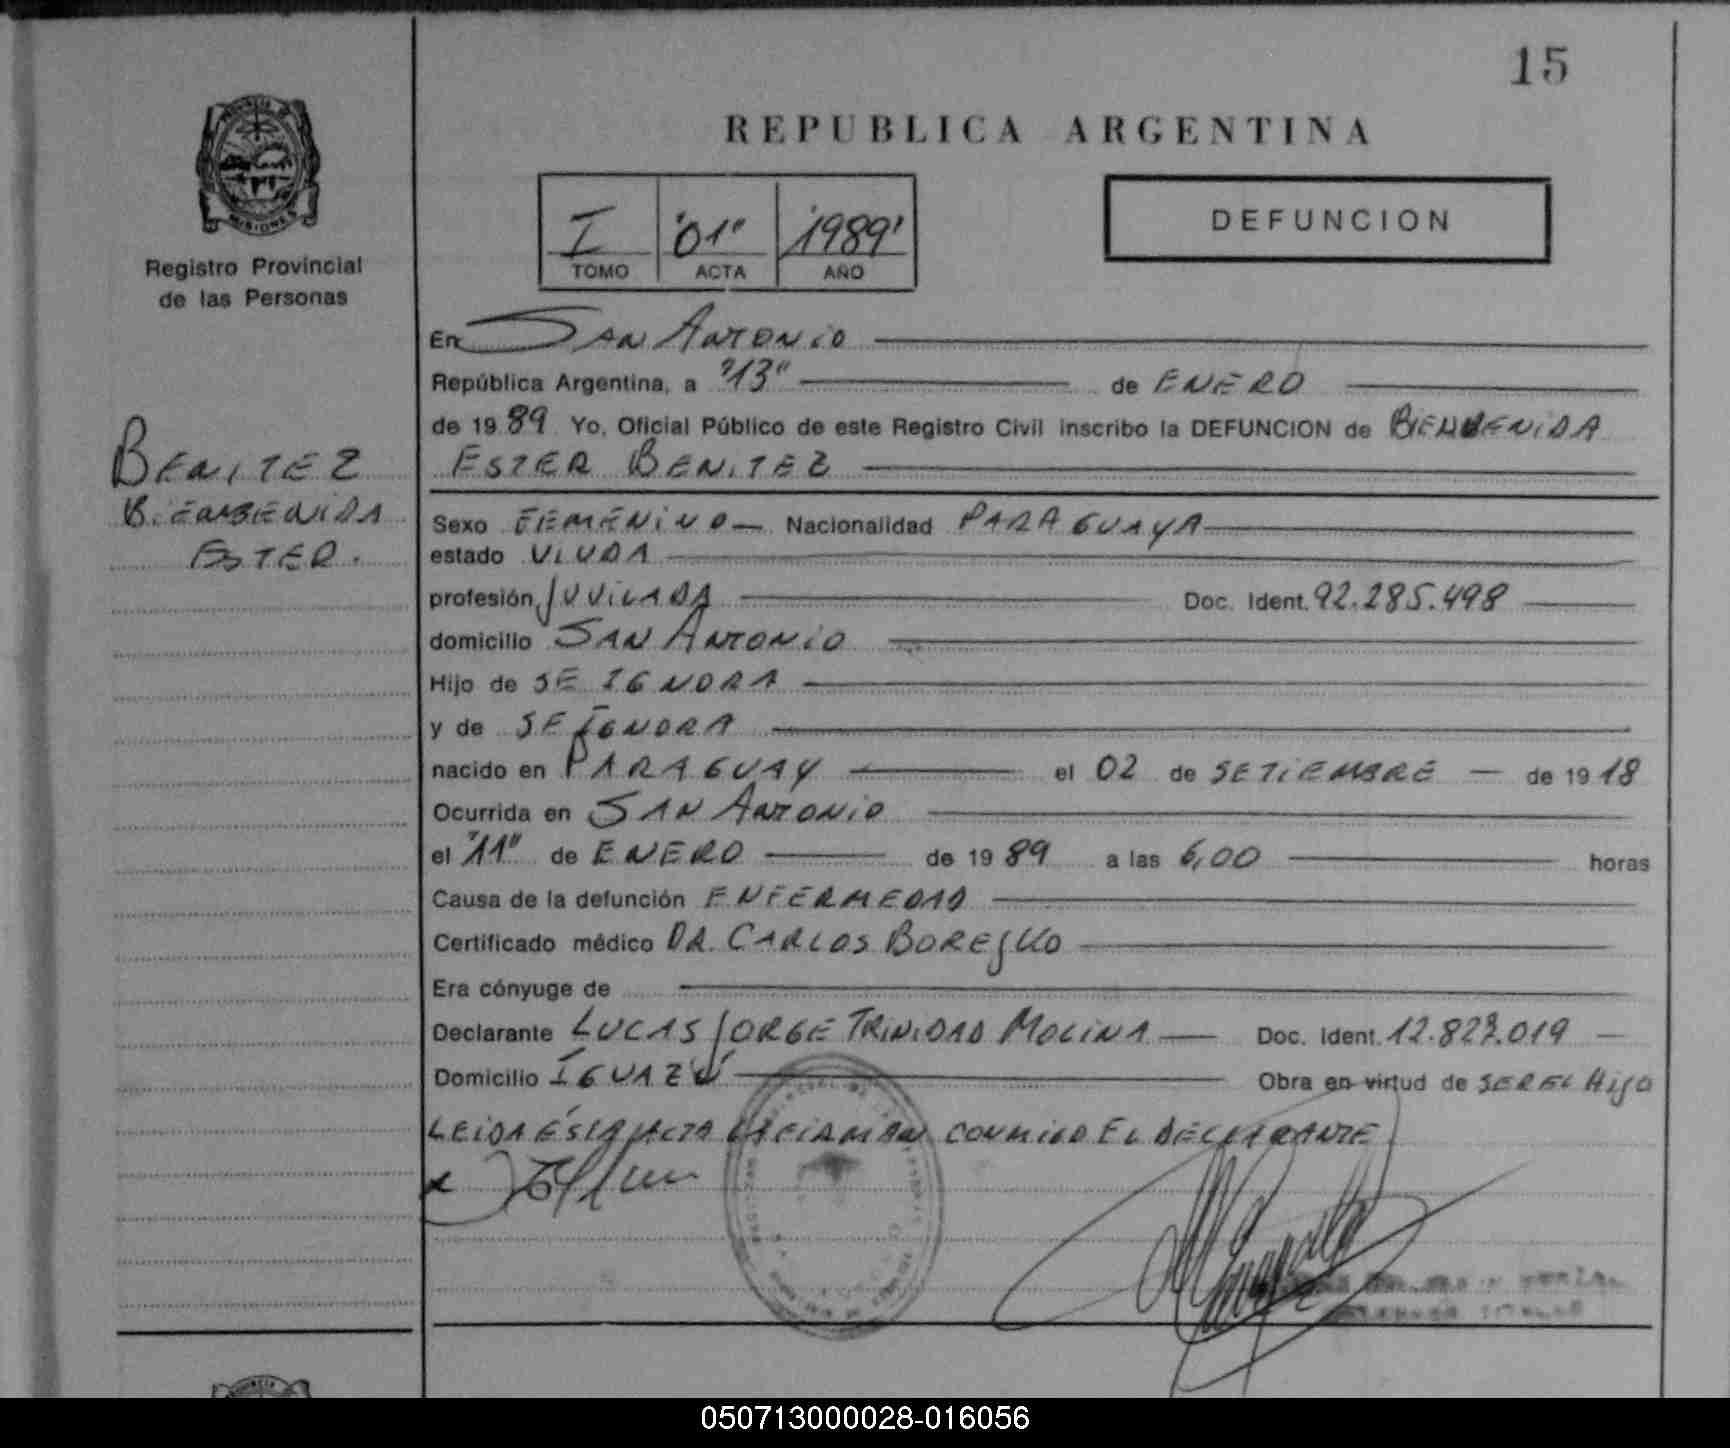 15
REPUBLICA ARGENTINA
PROVINCIA DE
MISIONES
Registro Provincial
de las Personas
I "01" '1989'
TOMO ACTA AÑO
DEFUNCION
BENITEZ
BIEMBENIDA
ESTER.
En SAN ANTONIO
República Argentina, a "13" de ENERO
de 1989 Yo, Oficial Público de este Registro Civil inscribo la DEFUNCION de BIEMBENIDA
ESTER BENITEZ
Sexo FEMENINO Nacionalidad PARAGUAYA
estado VIUDA
profesión JUVILADA Doc. Ident. 92.285.498
domicilio SAN ANTONIO
Hijo de SE IGNORA
y de SE IGNORA
nacido en PARAGUAY el 02 de SETIEMBRE de 1918
Ocurrida en SAN ANTONIO
el "11" de ENERO de 1989 a las 6,00 horas
Causa de la defunción ENFERMEDAD
Certificado médico DR. CARLOS
Era cónyuge de
Declarante LUCAS JORGE TRINIDAD MOLINA Doc. Ident.
Domicilio IGUAZÚ Obra en virtud de SER EL HIJO
LEIDA ÉSTA ACTA LA FIRMAN CONMIGO EL DECLARANTE
050713000028-016056